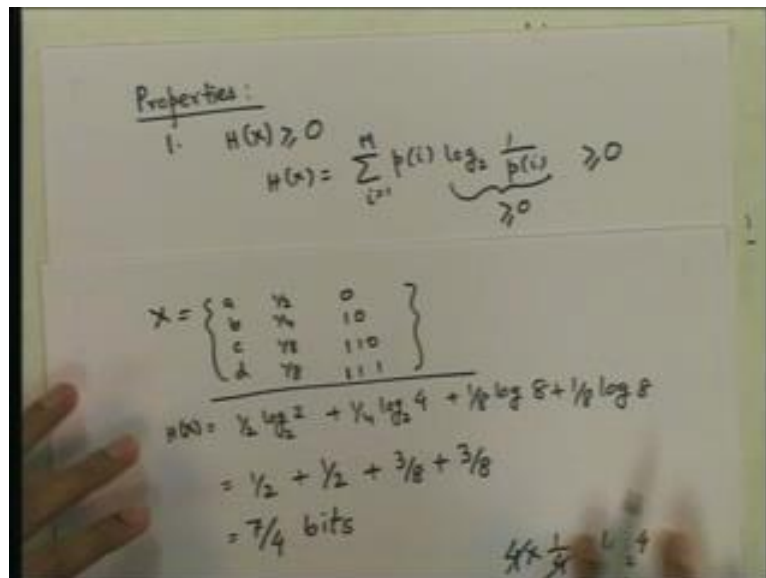 Properties:
1. H(x) ≥ 0
H(x) = M ∑ i=1 p(i) log₂ 1/p(i) ≥ 0
≥ 0
X = { a 1/2 0
b 1/4 10
c 1/8 110
d 1/8 111 }
H(x) = 1/2 log₂ 2 + 1/4 log₂ 4 + 1/8 log 8 + 1/8 log 8
= 1/2 + 1/2 + 3/8 + 3/8
= 7/4 bits